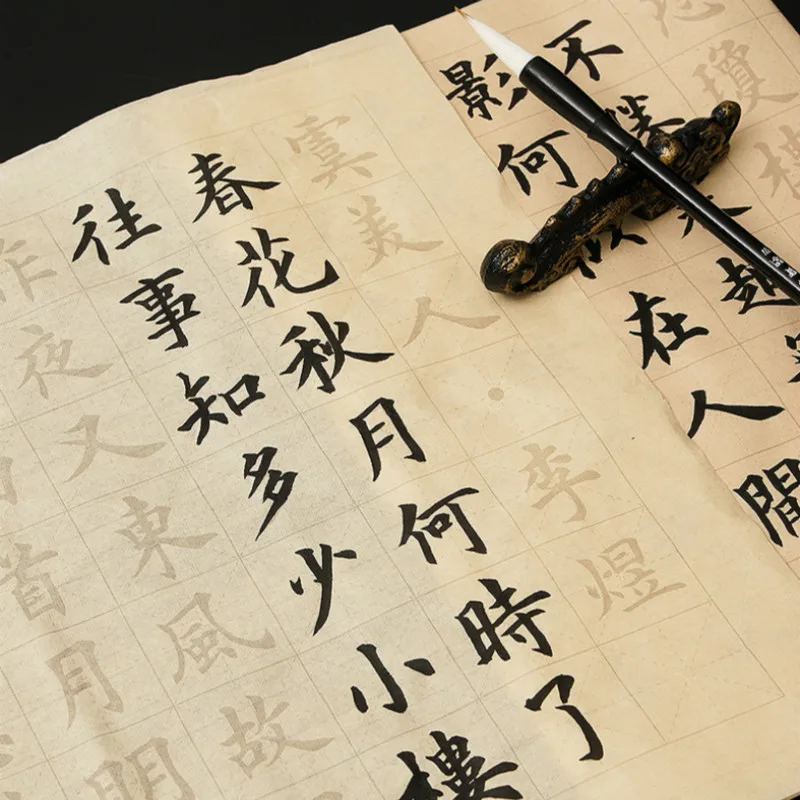 瓊樓
不起
影何似在人間
虞美人·李煜
春花秋月何時了
往事知多少小樓
昨夜又東風故
首月明